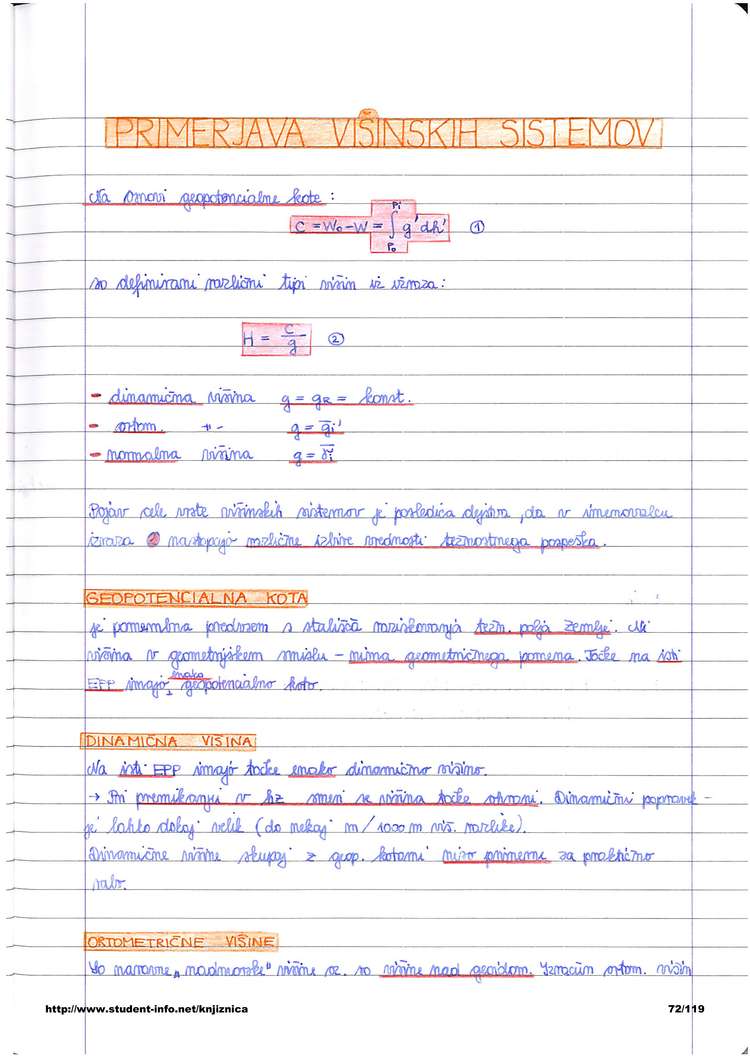 PRIMERJAVA VIŠINSKIH SISTEMOV
Na osnovi geopotencialne kote :
C = W₀ - W = ∫ g' dh' ①
Pi
P₀
so definirani različni tipi višin iz izraza :
H = C/g ②
- dinamična višina g = gR = konst.
- ortom. -"- g = ḡi'
- normalna višina g = γ̄i
Pojav cele vrste višinskih sistemov je posledica dejstva, da v imenovalcu
izraza ② nastopajo različne izbire vrednosti težnostnega pospeška.
GEOPOTENCIALNA KOTA
je pomembna predvsem s stališča raziskovanja težn. polja Zemlje. Ni
višina v geometrijskem smislu - nima geometričnega pomena. Točke na isti
EPP imajo enako geopotencialno koto.
DINAMIČNA VIŠINA
Na isti EPP imajo točke enako dinamično višino.
→ Pri premikanju v hz smeri se višina točke ohrani. Dinamični popravek -
je lahko dokaj velik (do nekaj m / 1000 m viš. razlike).
Dinamične višine skupaj z geop. kotami niso primerne za praktično
rabo.
ORTOMETRIČNE VIŠINE
So naravne „nadmorske" višine oz. so višine nad geoidom. Izračun ortom. višin
http://www.student-info.net/knjiznica 72/119